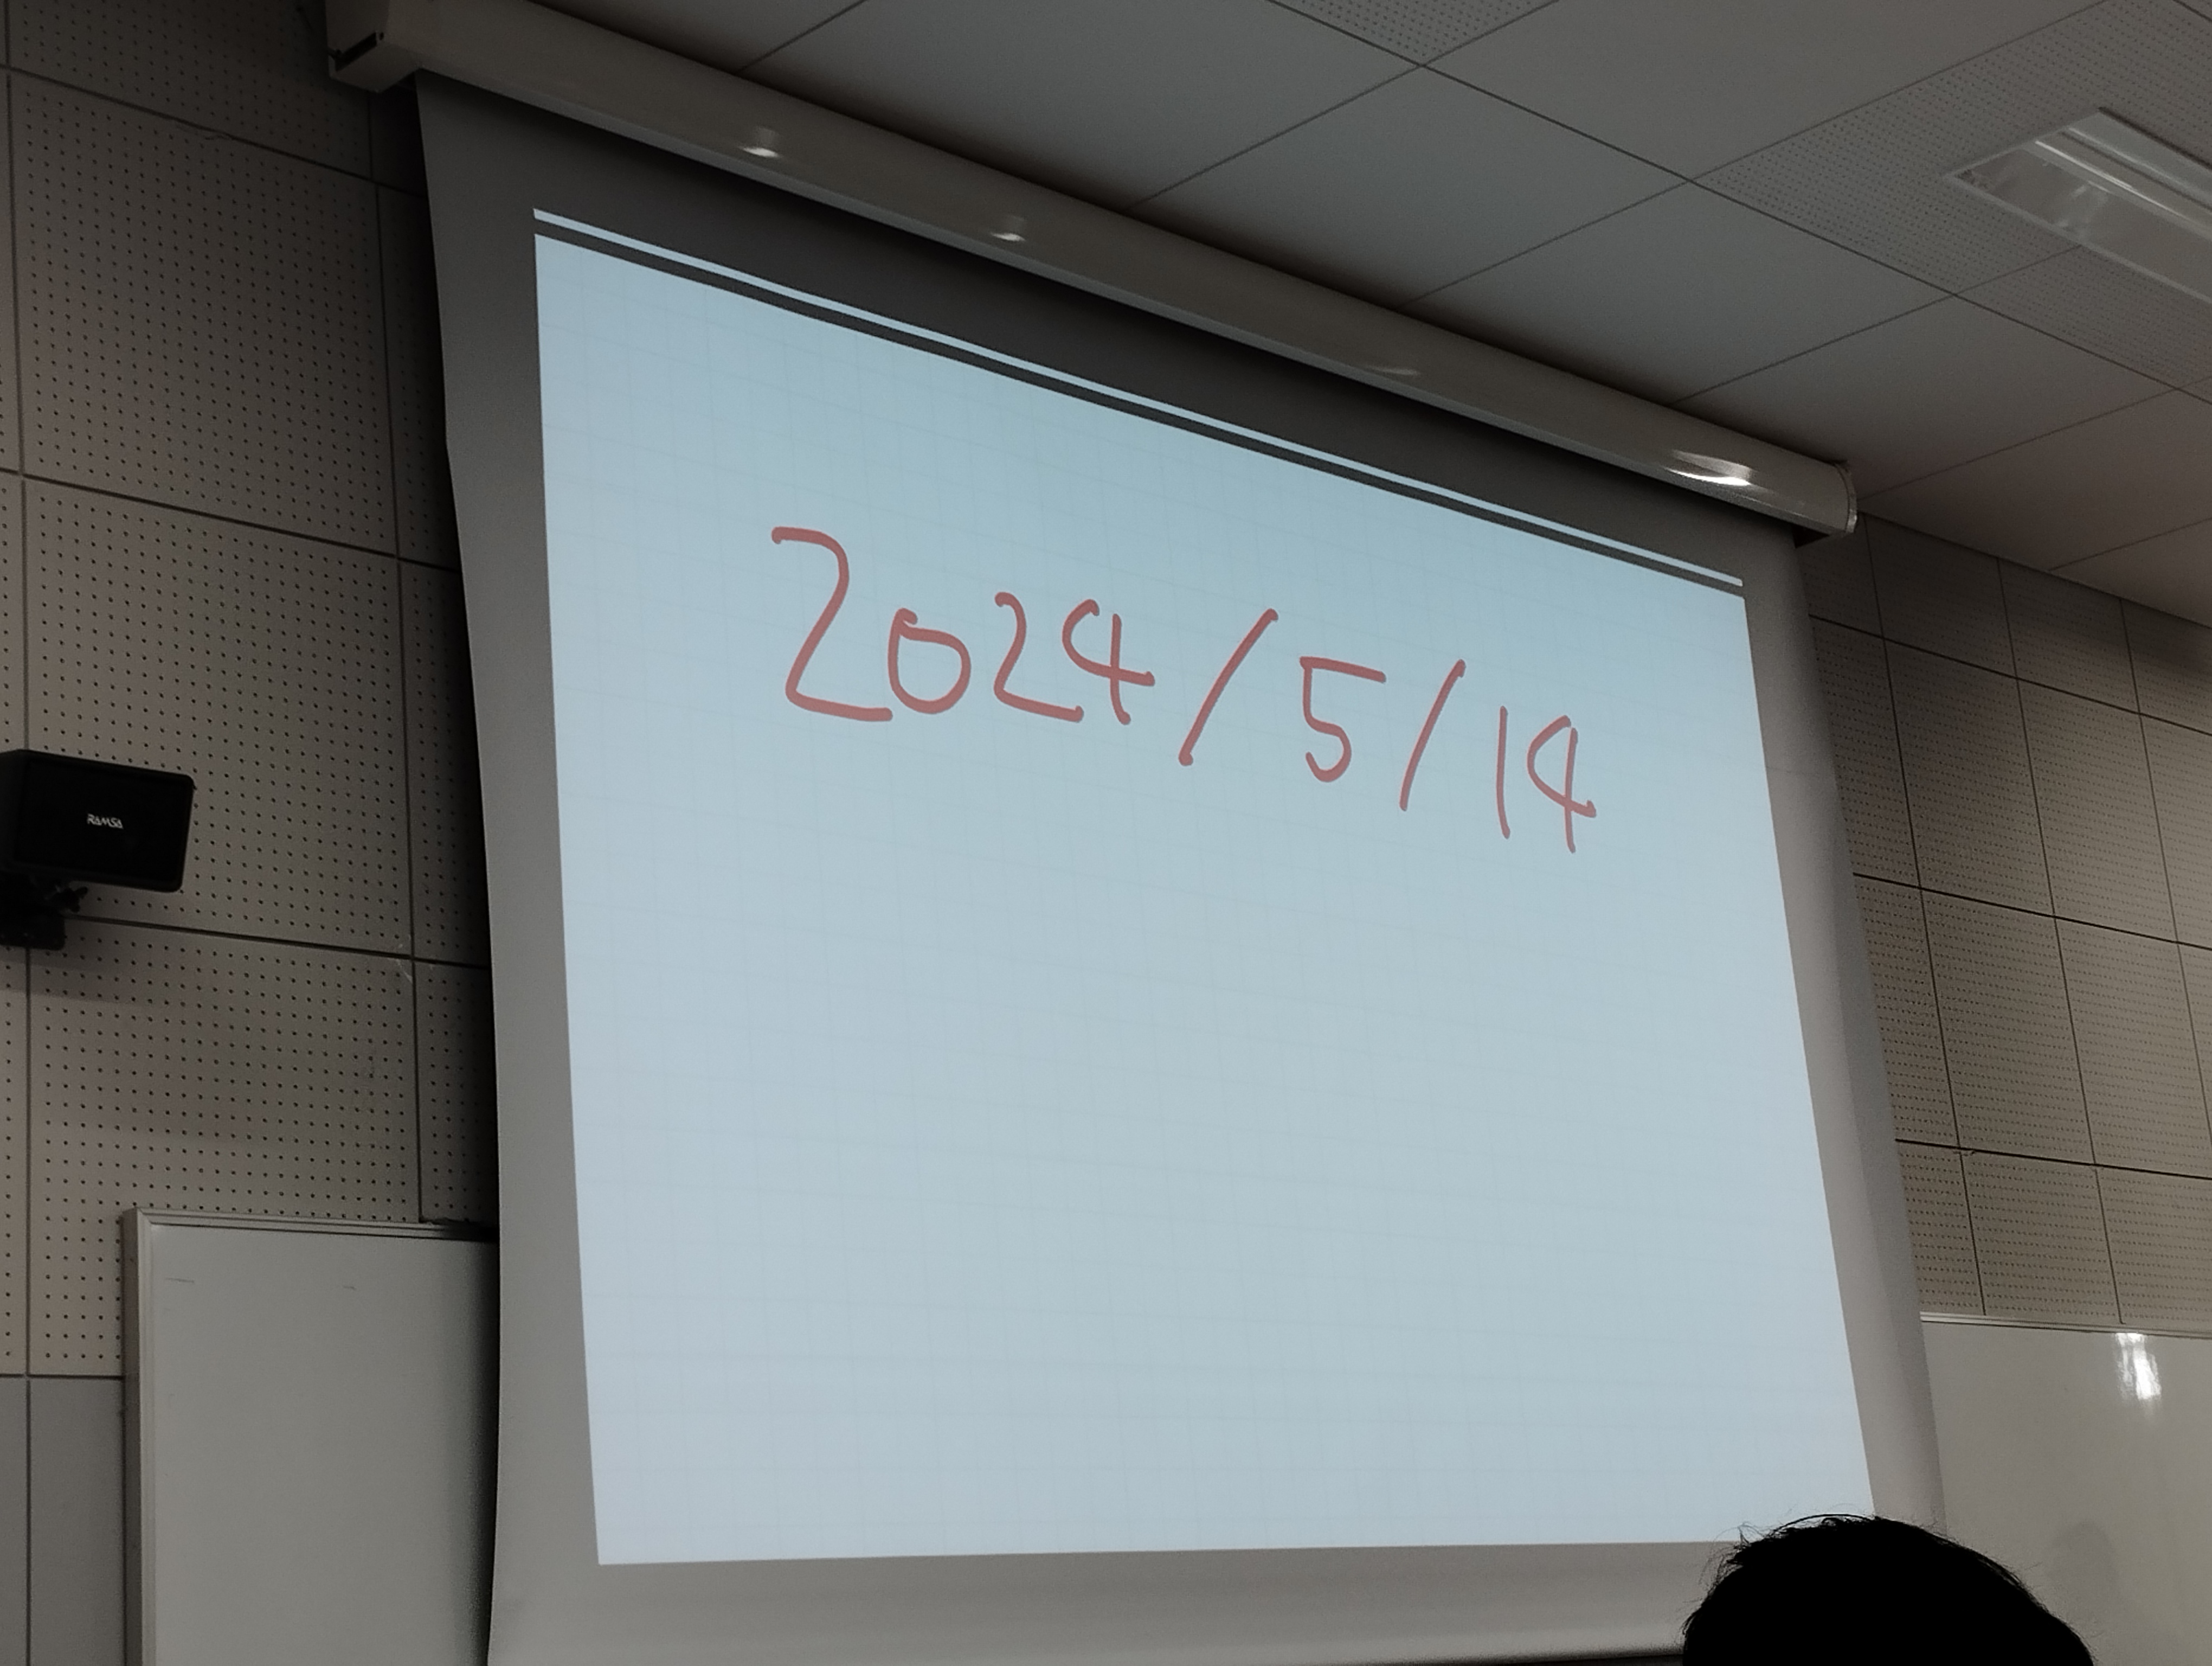 2024/5/14
RAMSA